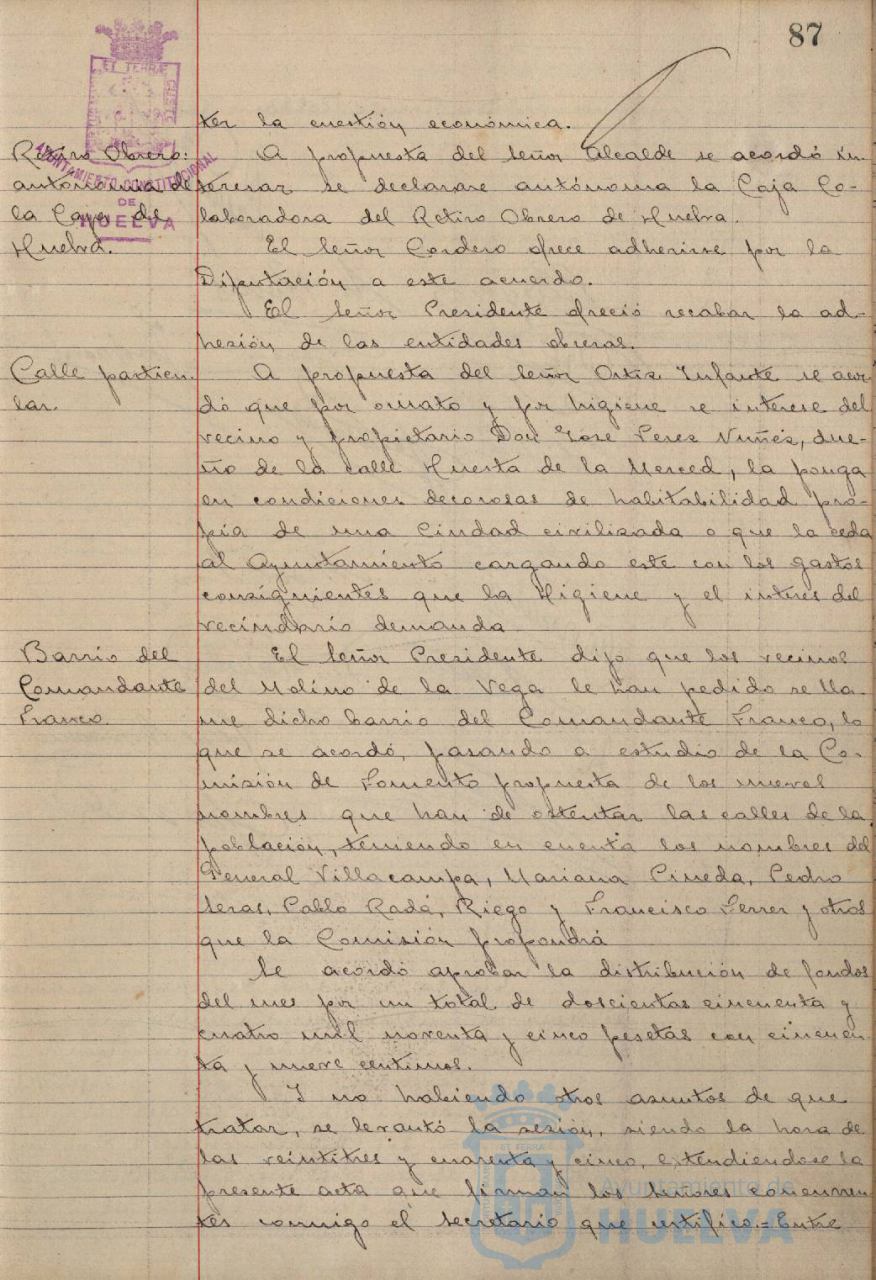 87
ET TERRÆ
AYUNTAMIENTO CONSTITUCIONAL
DE
HUELVA
ter la cuestión económica.
Retiro Obrero:
autonomía de
la Caja de
Huelva.
A propuesta del Señor Alcalde se acordó in-
teresar se declarase autónoma la Caja Co-
laboradora del Retiro Obrero de Huelva.
El Señor Cordero ofrece adherirse por la
Diputación a este acuerdo.
El Señor Presidente ofreció recabar la ad-
hesión de las entidades obreras.
Calle particu-
lar.
A propuesta del Señor Ortiz Infante se acor-
dó que por ornato y por higiene se interese del
vecino y propietario Don José Perez Nuñez, due-
ño de la calle Huerta de la Merced, la ponga
en condiciones decorosas de habitabilidad pro-
pia de una Ciudad civilizada o que la ceda
al Ayuntamiento cargando este con los gastos
consiguientes que la Higiene y el interes del
vecindario demanda
Barrio del
Comandante
Franco.
El Señor Presidente dijo que los vecinos
del Molino de la Vega le han pedido se lla-
me dicho barrio del Comandante Franco, lo
que se acordó, pasando a estudio de la Co-
misión de Fomento propuesta de los nuevos
nombres que han de ostentar las calles de la
población, teniendo en cuenta los nombres del
General Villacampa, Mariana Pineda, Pedro
Seras, Pablo Rada, Riego y Francisco Ferrer y otros
que la Comisión propondrá
Se acordó aprobar la distribución de fondos
del mes por un total de doscientas cincuenta y
cuatro mil noventa y cinco pesetas con cincuen-
ta y nueve centimos.
Y no habiendo otros asuntos de que
tratar, se levantó la sesión, siendo la hora de
las veintitres y cuarenta y cinco, extendiendose la
presente acta que firman los Señores concurren-
tes conmigo el Secretario que certifico.=Entre
Ayuntamiento de
HUELVA